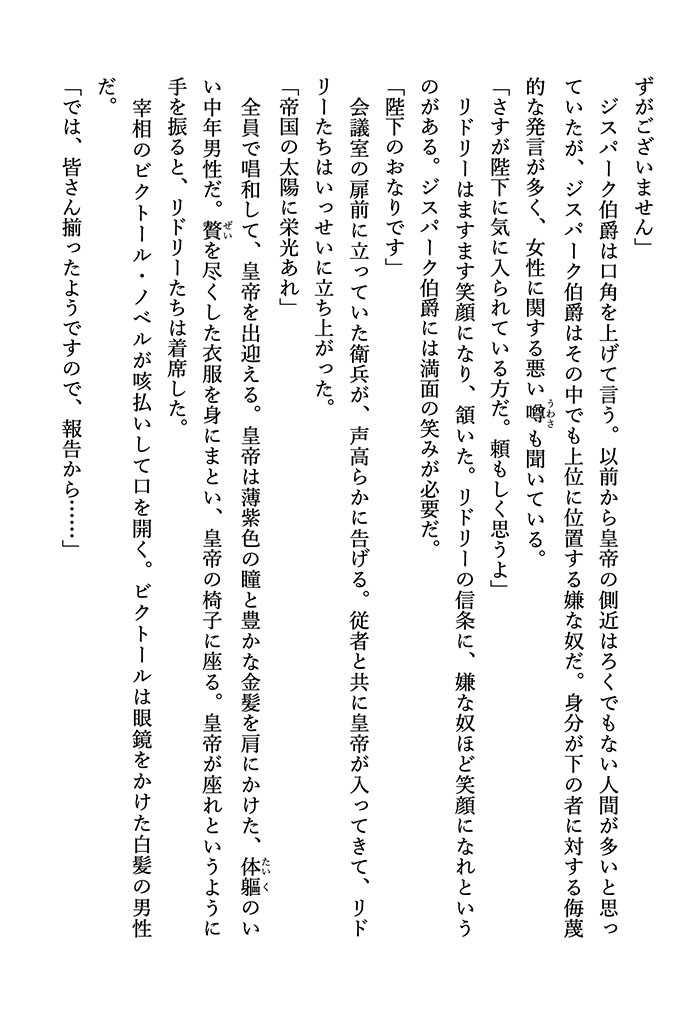 ずがございません」
　ジスパーク伯爵は口角を上げて言う。以前から皇帝の側近はろくでもない人間が多いと思っ
ていたが、ジスパーク伯爵はその中でも上位に位置する嫌な奴だ。身分が下の者に対する侮蔑
的な発言が多く、女性に関する悪い噂も聞いている。
「さすが陛下に気に入られている方だ。頼もしく思うよ」
　リドリーはますます笑顔になり、頷いた。リドリーの信条に、嫌な奴ほど笑顔になれという
のがある。ジスパーク伯爵には満面の笑みが必要だ。
「陛下のおなりです」
　会議室の扉前に立っていた衛兵が、声高らかに告げる。従者と共に皇帝が入ってきて、リド
リーたちはいっせいに立ち上がった。
「帝国の太陽に栄光あれ」
　全員で唱和して、皇帝を出迎える。皇帝は薄紫色の瞳と豊かな金髪を肩にかけた、体軀のい
い中年男性だ。贅を尽くした衣服を身にまとい、皇帝の椅子に座る。皇帝が座れというように
手を振ると、リドリーたちは着席した。
　宰相のビクトール・ノベルが咳払いして口を開く。ビクトールは眼鏡をかけた白髪の男性
だ。
「では、皆さん揃ったようですので、報告から……」